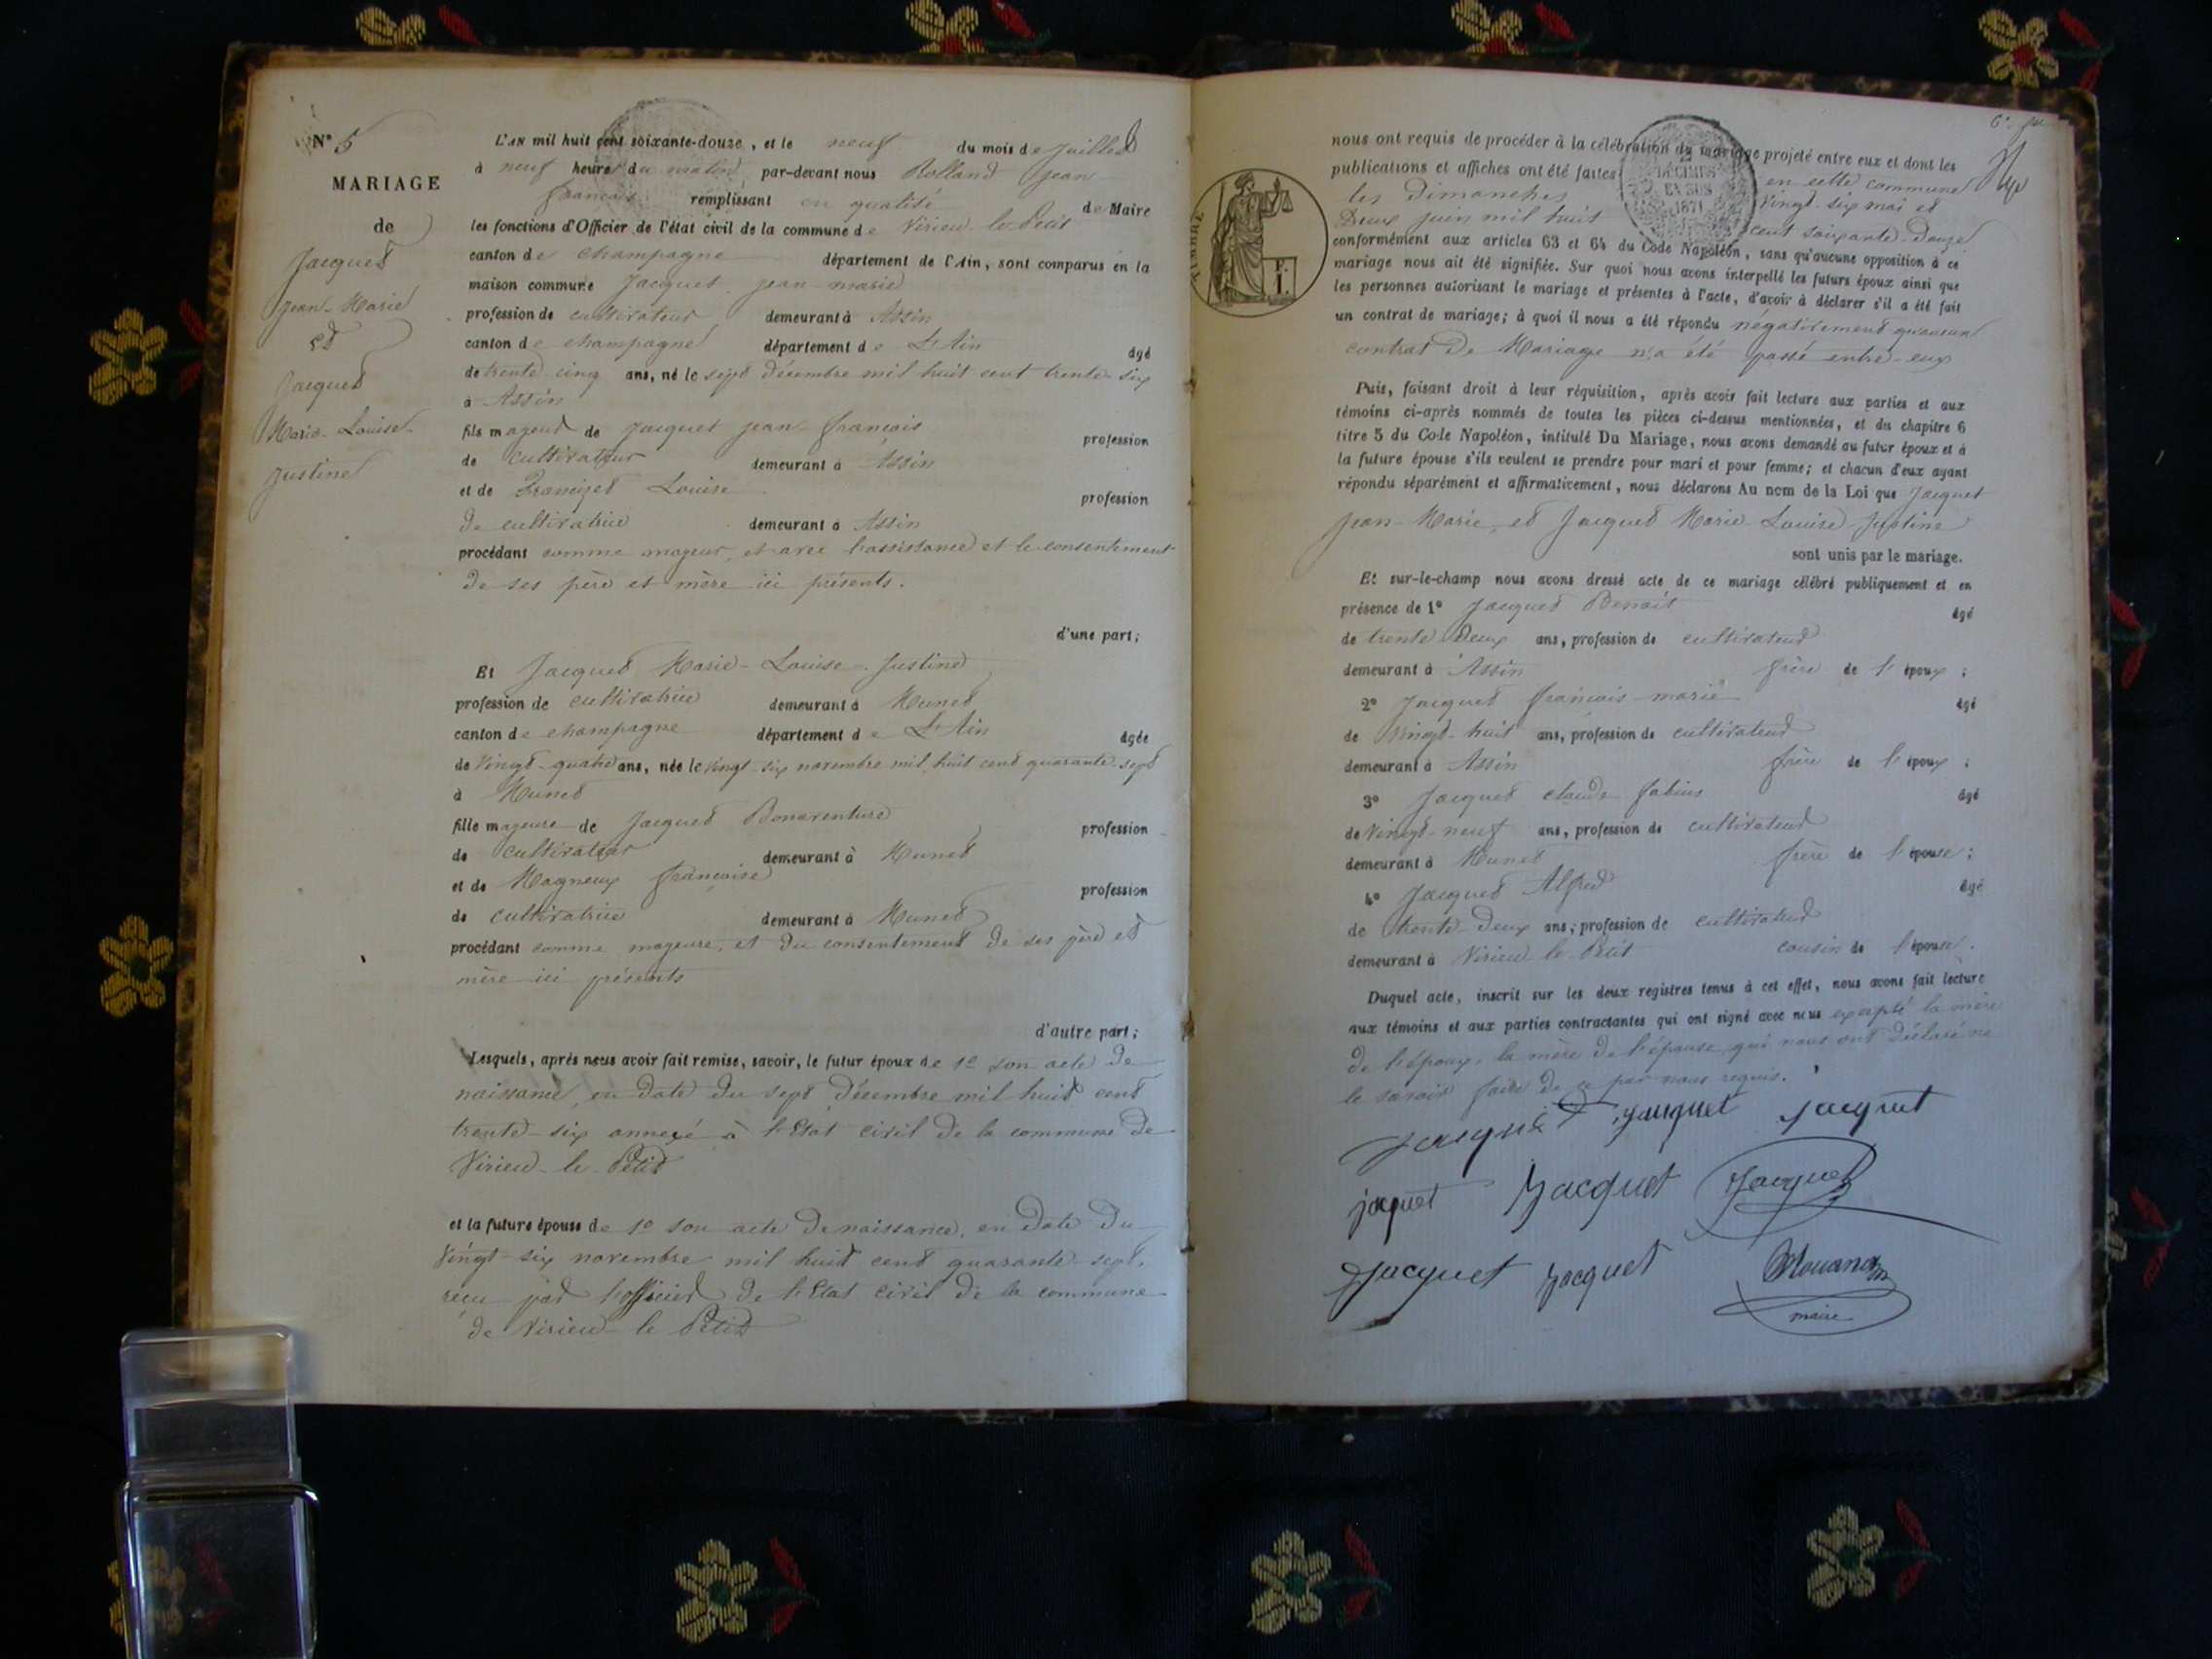 N° 5
MARIAGE
de
Jacquet
Jean-Marie
et
Jacquet
Marie-Louise-
Justine
L'AN mil huit cent soixante-douze, et le neuf du mois de Juillet
à neuf heure du matin par-devant nous Rolland Jean
françois remplissant en qualité de Maire
les fonctions d'Officier de l'état civil de la commune de Virieu-le-Petit
canton de Champagne département de l'Ain, sont comparus en la
maison commune Jacquet Jean-marie
profession de cultivateur demeurant à Assin
canton de Champagne département de L'Ain âgé
de trente cinq ans, né le sept décembre mil huit cent trente-six
à Assin
fils majeur de Jacquet Jean-françois profession
de cultivateur demeurant à Assin
et de Louise profession
de cultivatrice demeurant à Assin
procédant comme majeur, et avec l'assistance et le consentement
de ses père et mère ici présents.
d'une part;
Et Jacquet Marie-Louise-Justine
profession de cultivatrice demeurant à Munet
canton de Champagne département de L'Ain âgée
de Vingt-quatre ans, née le vingt-six novembre mil huit cent quarante-sept
à Munet
fille majeure de Jacquet Bonaventure profession
de cultivateur demeurant à Munet
et de Magneux françoise profession
de cultivatrice demeurant à Munet
procédant comme majeure, et du consentement de ses père et
mère ici présents
d'autre part;
Lesquels, après nous avoir fait remise, savoir, le futur époux de 1° son acte de
naissance, en date du sept Décembre mil huit cent
trente-six annexé à l'Etat civil de la commune de
Virieu-le-Petit
et la future épouse de 1° son acte de naissance, en date du
vingt-six novembre mil huit cent quarante-sept,
reçu par l'officier de l'Etat civil de la commune
de Virieu-le-Petit
nous ont requis de procéder à la célébration du mariage projeté entre eux et dont les
publications et affiches ont été faites en cette commune
les Dimanches vingt-six mai et
Deux juin mil huit cent soixante-Douze
2
DÉCIMES
EN SUS
1871
TIMBRE
conformément aux articles 63 et 64 du Code Napoléon, sans qu'aucune opposition à ce
mariage nous ait été signifiée. Sur quoi nous avons interpellé les futurs époux ainsi que
les personnes autorisant le mariage et présentes à l'acte, d'avoir à déclarer s'il a été fait
un contrat de mariage; à quoi il nous a été répondu négativement qu'aucun
contrat de Mariage n'a été passé entre-eux
Puis, faisant droit à leur réquisition, après avoir fait lecture aux parties et aux
témoins ci-après nommés de toutes les pièces ci-dessus mentionnées, et du chapitre 6
titre 5 du Code Napoléon, intitulé Du Mariage, nous avons demandé au futur époux et à
la future épouse s'ils veulent se prendre pour mari et pour femme; et chacun d'eux ayant
répondu séparément et affirmativement, nous déclarons Au nom de la Loi que Jacquet
Jean-Marie, et Jacquet Marie-Louise-Justine
sont unis par le mariage.
Et sur-le-champ nous avons dressé acte de ce mariage célébré publiquement et en
présence de 1° Jacquet Benoit âgé
de trente-deux ans, profession de cultivateur
demeurant à Assin frère de l'époux;
2° Jacquet françois-marie âgé
de vingt-huit ans, profession de cultivateur
demeurant à Assin frère de l'époux;
3° Jacquet claude fabius âgé
de Vingt-neuf ans, profession de cultivateur
demeurant à Munet frère de l'épouse;
4° Jacquet Alfred âgé
de trente-deux ans; profession de cultivateur
demeurant à Virieu-le-Petit cousin de l'épouse.
Duquel acte, inscrit sur les deux registres tenus à cet effet, nous avons fait lecture
aux témoins et aux parties contractantes qui ont signé avec nous excepté la mère
de l'époux, la mère de l'épouse, qui nous ont déclaré ne
le savoir faire de ce par nous requis.
Jacquet Jacquet Jacquet
jaquet Jacquet Jacquet
Jacquet Jacquet
maire